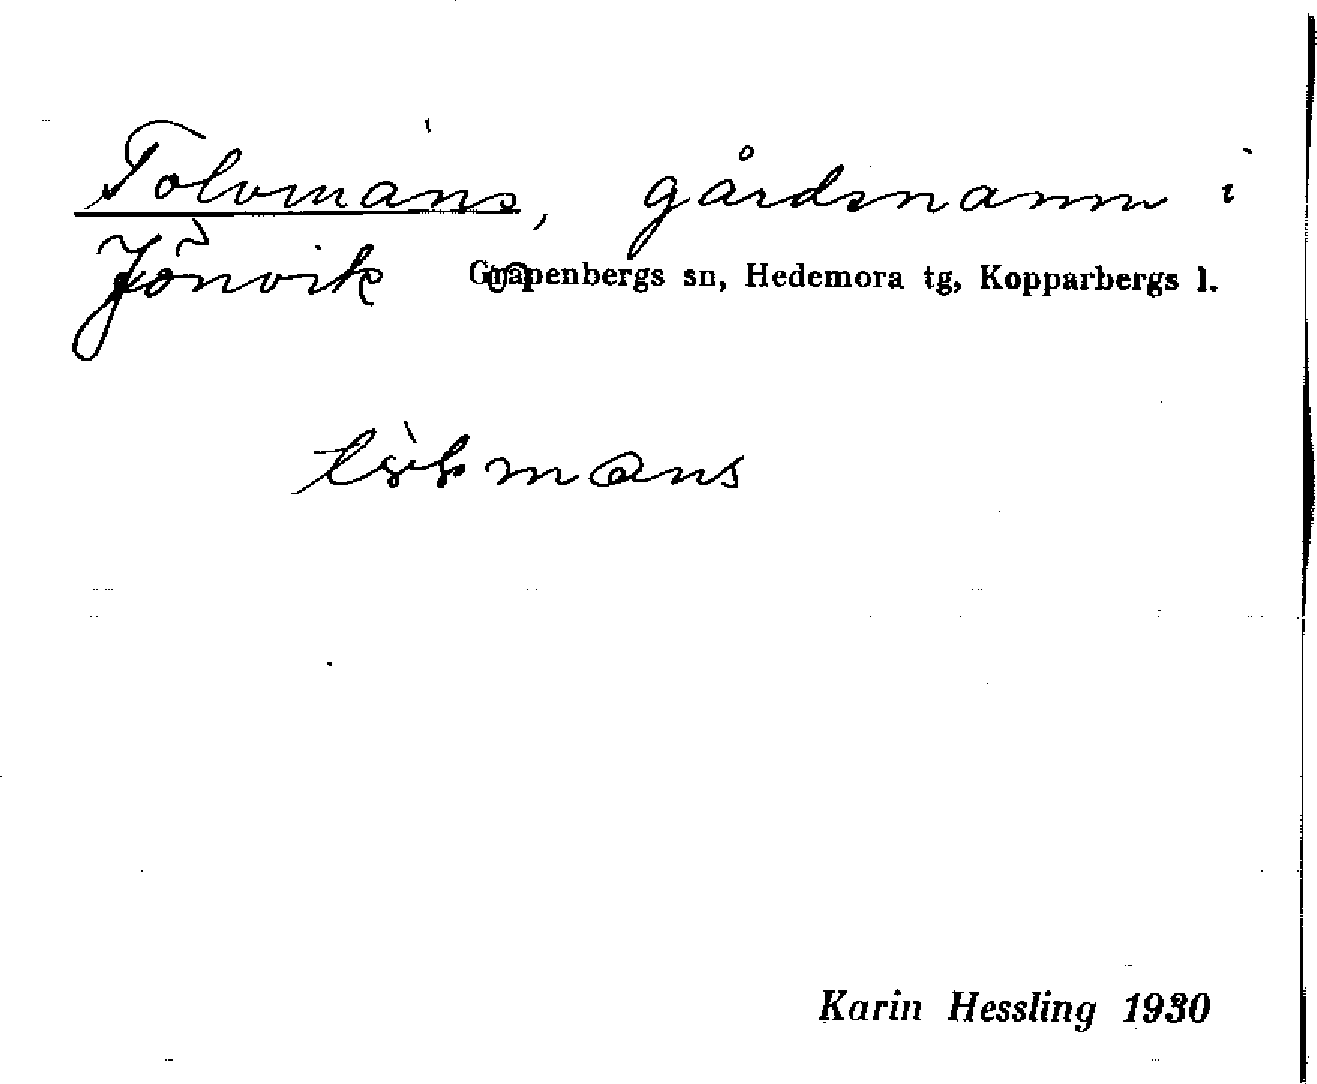 Tolvmans, gårdsnamn i
Jönvik Garpenbergs sn, Hedemora tg, Kopparbergs l.
Karin Hessling 1930